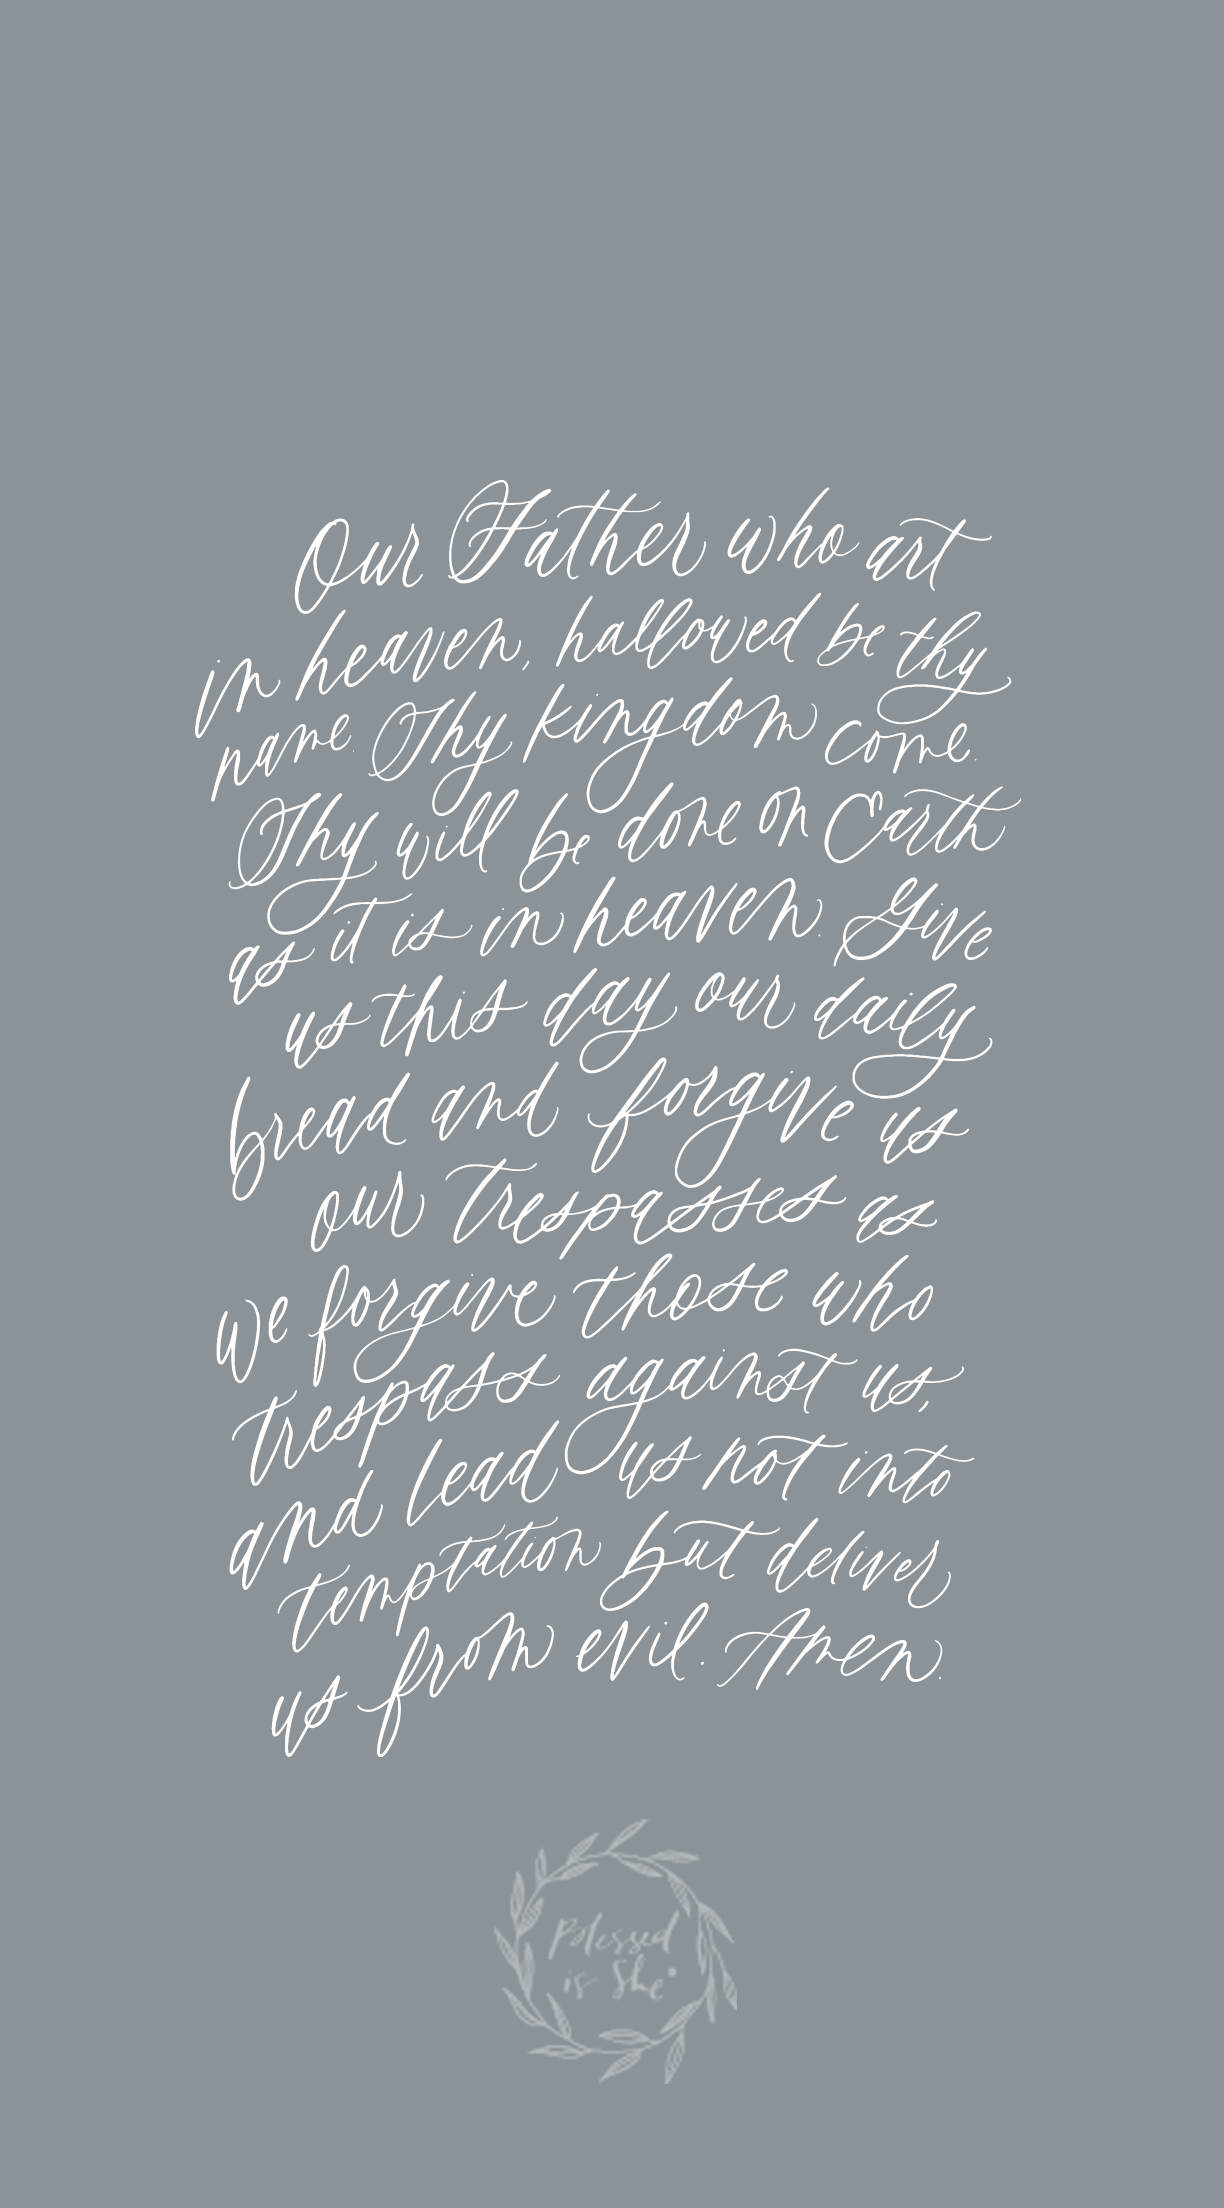 Our Father who art
in heaven, hallowed be thy
name. Thy kingdom come.
Thy will be done on Earth
as it is in heaven. Give
us this day our daily
bread and forgive us
our trespasses as
we forgive those who
trespass against us,
and lead us not into
temptation but deliver
us from evil. Amen.
Blessed
is She